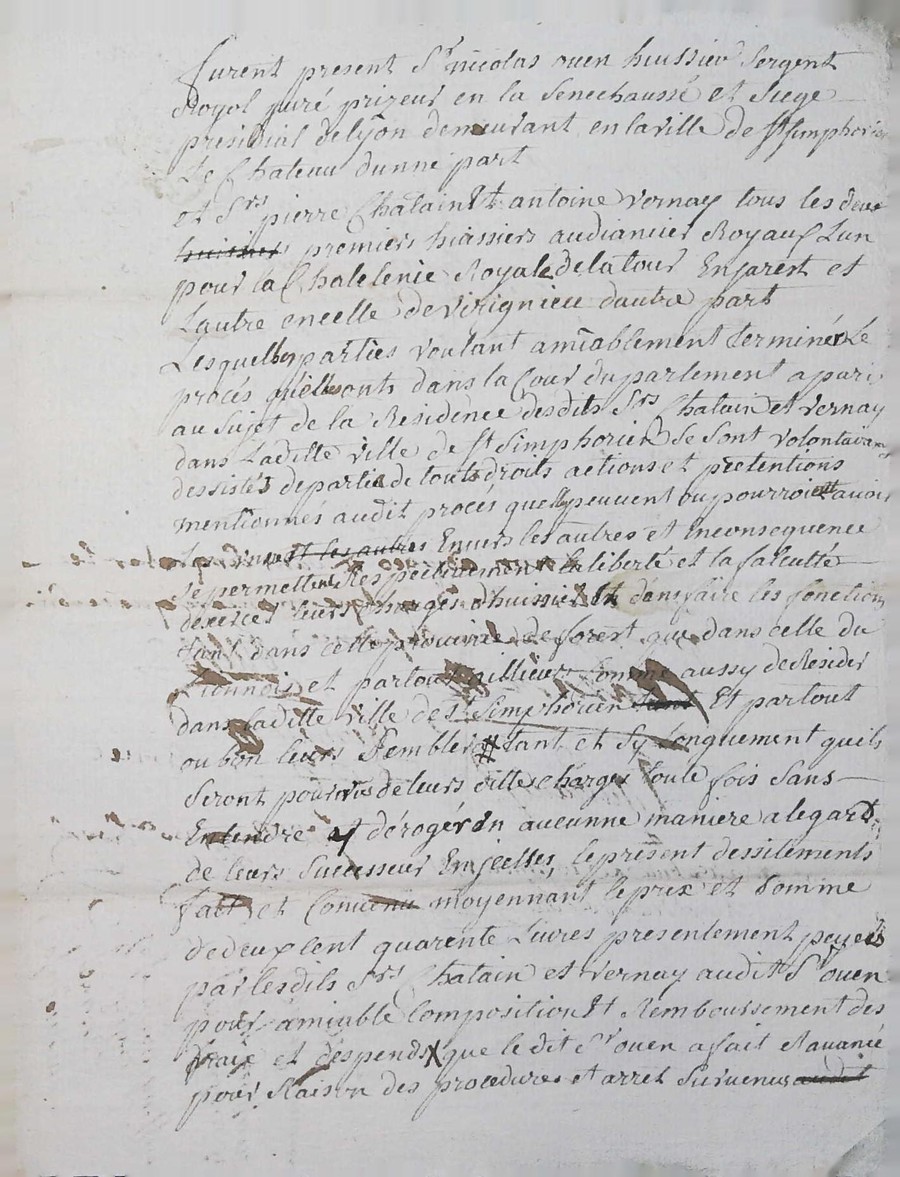 furent present Sr nicolas ouen huissier Sergent
Royal juré prizeur en la Senechaussé et Siege
presidial de lyon demeurant en la ville de St Simphorien
Le Chateau dunne part
et Srs pierre Chatain Et antoine vernay tous les deux
huissiers premiers huissiers audiancier Royaux Lun
pour la Chatelenie Royale de la tour En jarest et
Lautre en celle de virignieu dautre part
Lesquelles parties voulant amiablement terminér Le
procés quelles onts dans la Cour du parlement a paris
au Sujet de la Residence desdits Srs Chatain et vernay
dans Laditte ville de St Simphorien Se Sont volontairem
dessistés departie de touts droits actions et pretentions
mentionnés audit procés quelles peuvent ou pourroient avoir
les uns et les autres Envers les autres et Inconsequence
Se permettent Respectivement la liberté et la faculté
dexercer leurs charges dhuissier Et den faire les fonctions
tant dans cette province de forest que dans celle du
Lionnois et partout aillieurs Comme aussy de Resider
dans laditte ville de St Simphorien tant Et partout
ou bon leurs Semblera # tant et Sy Longuement quils
Seront pourvus de leurs dittes charges toute fois Sans
Entendre y dérogér En aucunne maniere a legard
de leurs Successeur En jcelles, le present dessistements
fait et Convenu moyennant le prix et Somme
de deux Cent quarente Livres presentement payeés
par lesdits Srs Chatain et vernay audit Sr ouen
pour amiable Composition Et Remboussement des
fraix et despends X que le dit Sr ouen a fait et avancé
pour Raison des procedures et arret Survenus audit